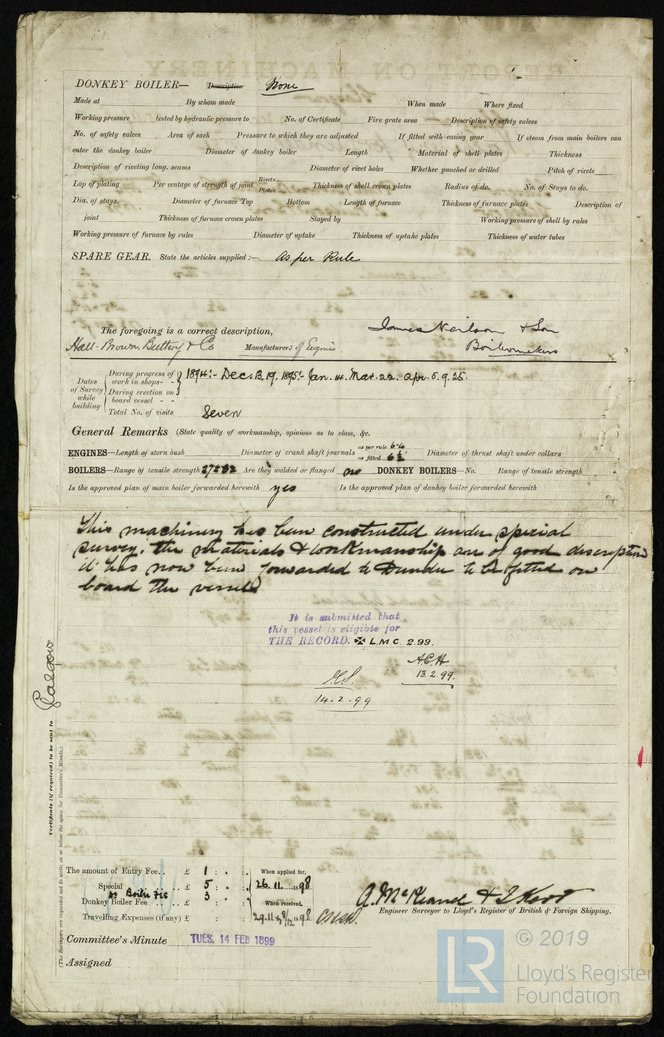 DONKEY BOILER— Description None
Made at By whom made When made Where fixed
Working pressure tested by hydraulic pressure to No. of Certificate Fire grate area Description of safety valves
No. of safety valves Area of each Pressure to which they are adjusted If fitted with easing gear If steam from main boilers can
enter the donkey boiler Diameter of donkey boiler Length Material of shell plates Thickness
Description of riveting long. seams Diameter of rivet holes Whether punched or drilled Pitch of rivets
Lap of plating Per centage of strength of joint Rivets Plates Thickness of shell crown plates Radius of do. No. of Stays to do.
Dia. of stays. Diameter of furnace Top Bottom Length of furnace Thickness of furnace plates Description of
joint Thickness of furnace crown plates Stayed by Working pressure of shell by rules
Working pressure of furnace by rules Diameter of uptake Thickness of uptake plates Thickness of water tubes
SPARE GEAR. State the articles supplied:— As per Rule
The foregoing is a correct description, James Neilson & Son
Hall-Brown, Buttery & Co Manufacturers of Engines Boilermakers
Dates of Survey while building
During progress of work in shops - - 1894:- Dec. 13. 19. 1895:- Jan. 4. Mar. 22. Apr. 5. 9. 25.
During erection on board vessel - -
Total No. of visits Seven
General Remarks (State quality of workmanship, opinions as to class, &c.
ENGINES—Length of stern bush Diameter of crank shaft journals as per rule as fitted 6½ Diameter of thrust shaft under collars
BOILERS—Range of tensile strength 27 & 32 Are they welded or flanged no DONKEY BOILERS—No. Range of tensile strength
Is the approved plan of main boiler forwarded herewith yes Is the approved plan of donkey boiler forwarded herewith
This machinery has been constructed under special
survey. the materials & workmanship are of good description
it has now been forwarded to Dundee to be fitted on
board the vessel
It is submitted that
this vessel is eligible for
THE RECORD. ✠ L.M.C. 2.99.
13.2.99.
14.2.99
Glasgow
Certificate (if required) to be sent to
(The Surveyors are requested not to write on or below the space for Committee's Minute.)
The amount of Entry Fee.. £ 1 : : When applied for,
Special £ 5 : : 26.11.1898
Donkey Boiler Fee £ 3 : : When received,
Travelling Expenses (if any) £ : :
Engineer Surveyor to Lloyd's Register of British & Foreign Shipping.
Committee's Minute TUES, 14 FEB 1899
Assigned
LR © 2019
Lloyd's Register
Foundation